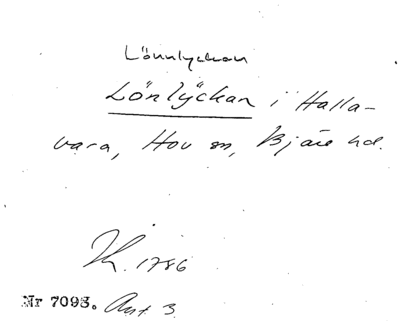 Lönnlyckan
Lönlÿckan i Halla-
vara, Hov sn, Bjäre hd.
1786
Nr 7093. Ant. 3